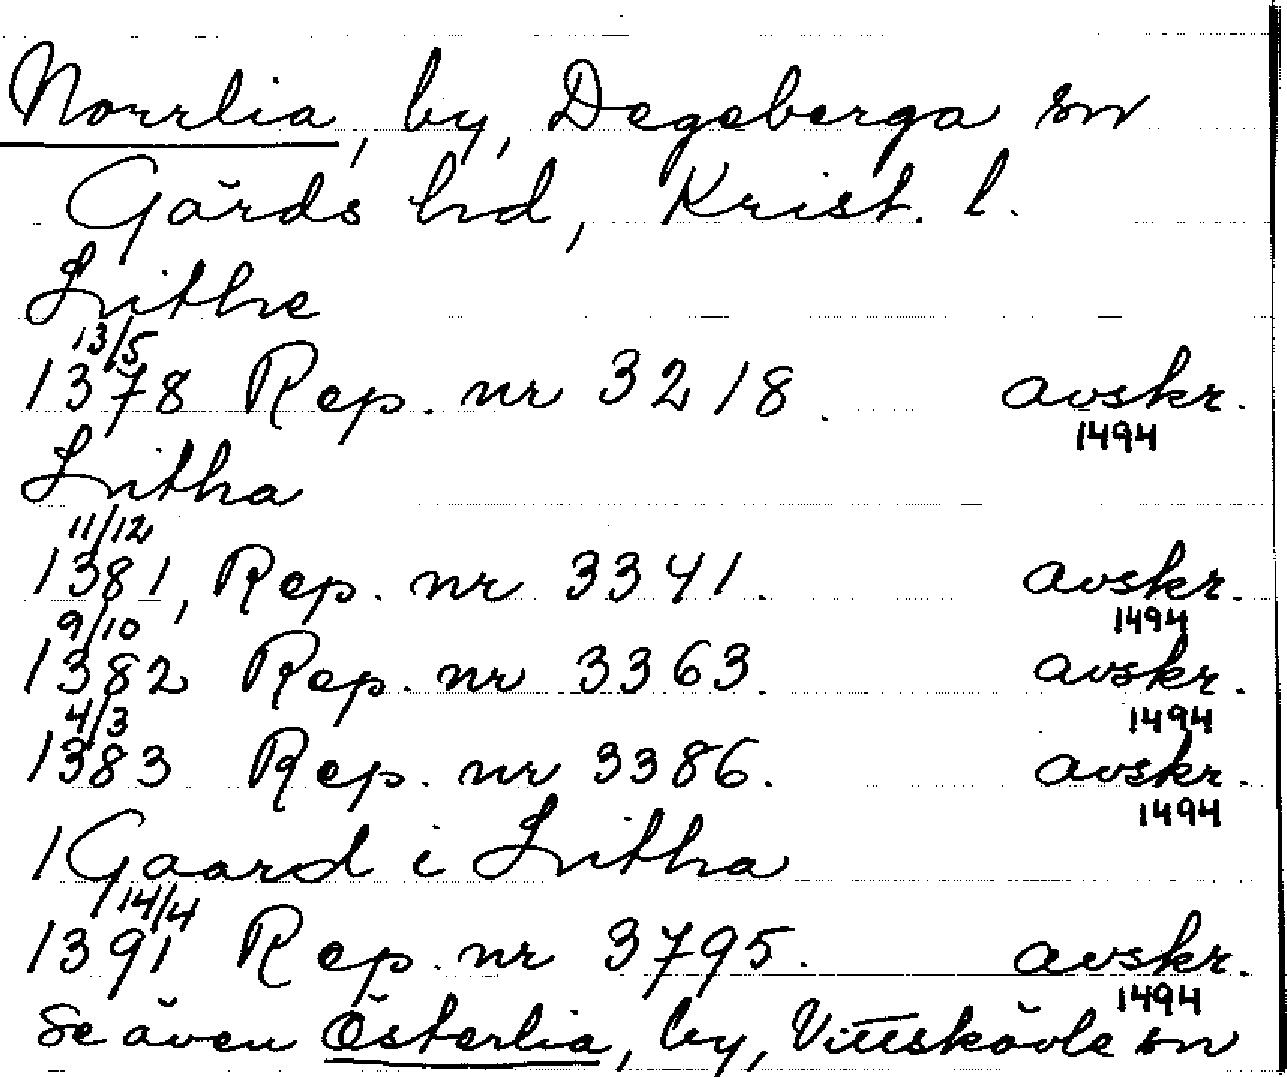 Norrlia, by, Degeberga sn
Gärds hd, Krist. l.
Liithe
13/5
1378 Rep. nr 3218. avskr.
1494
Liitha
11/12
1381, Rep. nr 3341. avskr.
1494
9/10
1382 Rep. nr 3363. avskr.
1494
4/3
1383 Rep. nr 3386. avskr.
1494
1 Gaard i Liitha
14/4
1391 Rep. nr 3795. avskr.
1494
Se även Österlia, by, Vittskövle sn